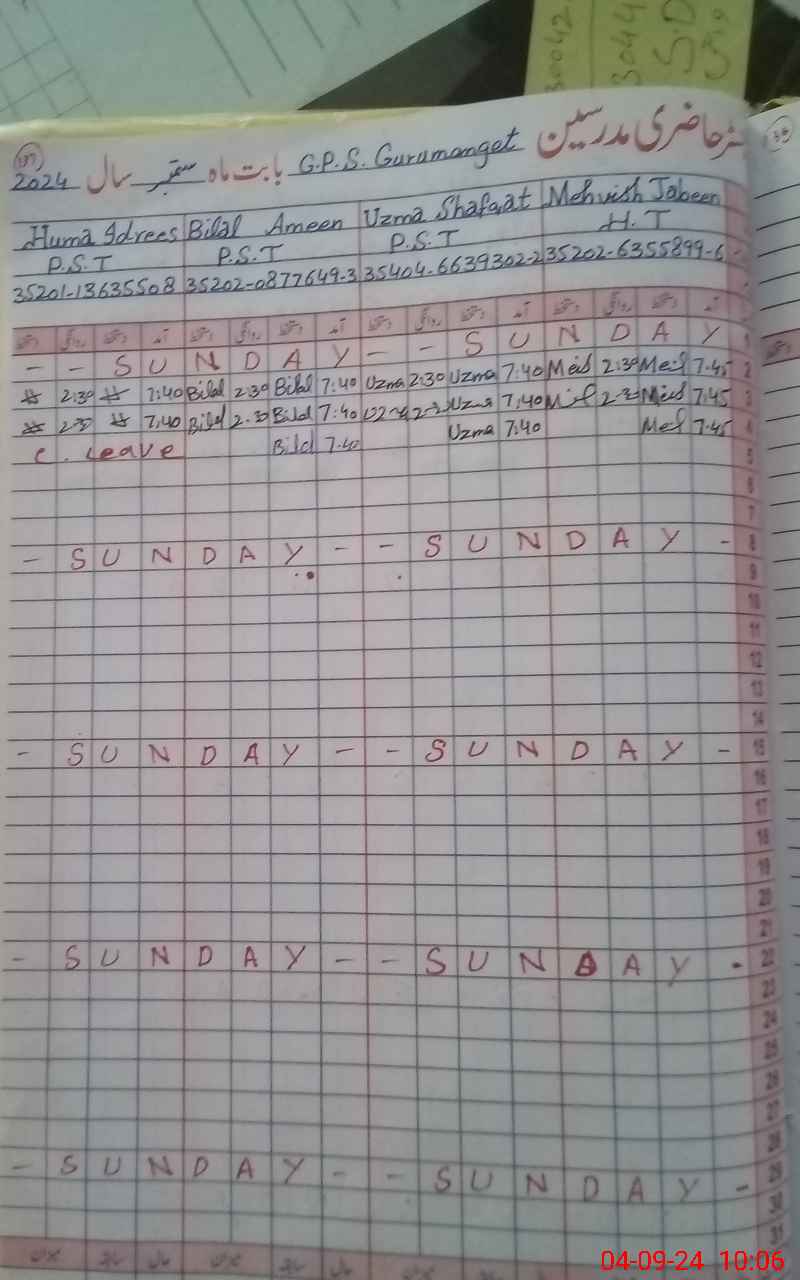 30042
3044
S.D
رجسٹر حاضری مدرسین
G.P.S. Gurumanget بابت ماہ ستمبر سال 2024
137
Huma Idrees Bilal Ameen Uzma Shafaat Mehvish Jabeen
P.S.T P.S.T P.S.T H.T
35201-13635508 35202-0877649-3 35404-6639302-2 35202-6355899-6
دستخط روانگی دستخط آمد دستخط روانگی دستخط آمد دستخط روانگی دستخط آمد دستخط روانگی دستخط آمد
- - S U N D A Y - - S U N D A Y 1
2:30 7:40 Bilal 2:30 Bilal 7:40 Uzma 2:30 Uzma 7:40 2:30 7:45 2
2:30 7:40 Bilal 2:30 Bilal 7:40 Uzma 2:30 Uzma 7:40 2:30 7:45 3
C. Leave Bilal 7:40 Uzma 7:40 7:45 4
5
6
7
- S U N D A Y - - S U N D A Y - 8
9
10
11
12
13
14
- S U N D A Y - - S U N D A Y - 15
16
17
18
19
20
21
- S U N D A Y - - S U N D A Y - 22
23
24
25
26
27
28
- S U N D A Y - - S U N D A Y - 29
30
31
میزان سابقہ حال میزان سابقہ حال میزان سابقہ
04-09-24 10:06